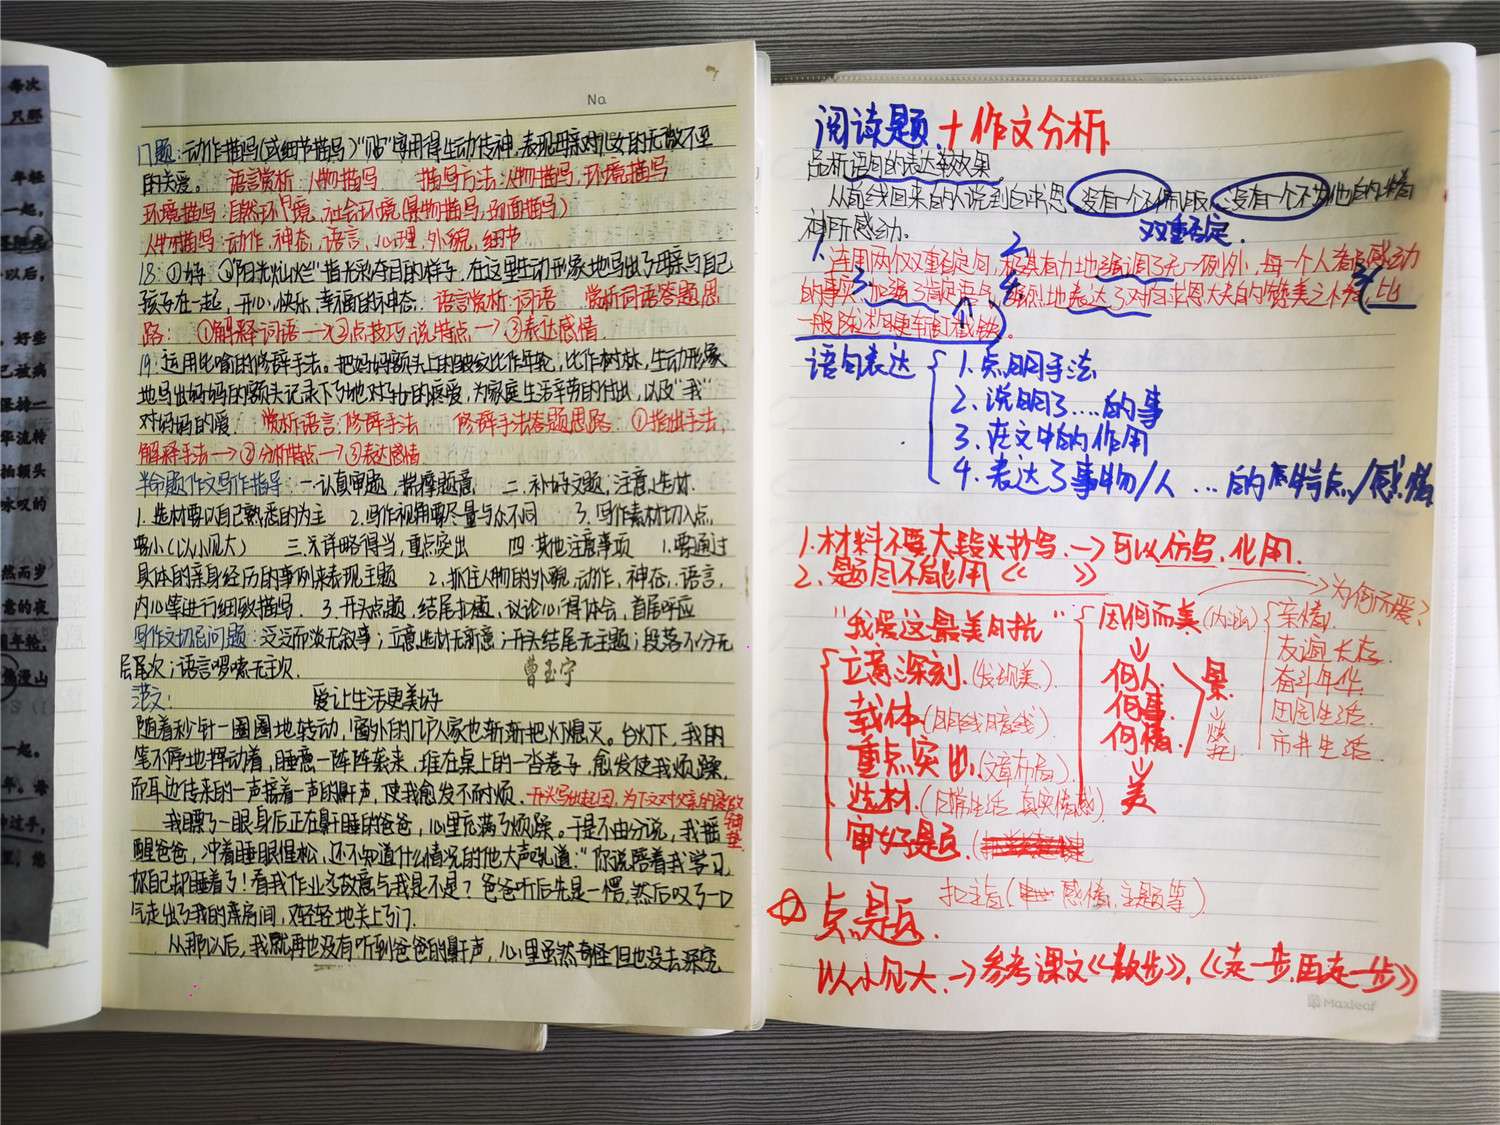 每次
只要
年轻
一起，
以后，
好些
已被病
保持一
华流转
抬额头
咏叹的
然而岁
意的夜
圈年轮，
像漫山
一起。
No.
17题：动作描写(或细节描写)"贴"字用得生动传神，表现母亲对儿女的无微不至
的关爱。 语言赏析：人物描写 描写方法：人物描写，环境描写
环境描写：自然环境，社会环境(景物描写，场面描写)
人物描写：动作，神态，语言，心理，外貌，细节
18：①好；②"阳光灿烂"指光彩夺目的样子，在这里生动形象地写出了母亲与自己
孩子在一起，开心，快乐，幸福的神态。 语言赏析：词语 赏析词语答题思
路：①解释词语→②点技巧，说特点→③表达感情
19：运用比喻的修辞手法。把妈妈额头上的皱纹比作年轮，比作树林，生动形象
地写出妈妈的额头记录下了她对子女的疼爱，为家庭生活辛劳的付出，以及"我"
对妈妈的爱。 赏析语言：修辞手法 修辞手法答题思路 ①指出手法，
解释手法→②分析特点→③表达感情
半命题作文写作指导：一认真审题，揣摩题意 二.补好文题，注意选材.
1.选材要以自己熟悉的为主 2.写作视角要尽量与众不同 3.写作素材切入点，
要小(以小见大) 三.详略得当，重点突出 四.其他注意事项 1.要通过
具体的亲身经历的事例来表现主题 2.抓住人物的外貌，动作，神态，语言，
内心等进行细致描写. 3.开头点题，结尾扣题，议论心得体会，首尾呼应
写作文切忌问题：泛泛而谈无叙事；立意选材无新意；开头结尾无主题；段落不分无
层次；语言啰嗦无主次. 曹玉宁
范文： 爱让生活更美好
随着秒针一圈圈地转动，窗外的几户人家也渐渐把灯熄灭。台灯下，我的
笔不停地挥动着，睡意一阵阵袭来，堆在桌上的一沓卷子，愈发使我烦躁，
而耳边传来的一声接着一声的鼾声，使我愈发不耐烦. 开头写出起因，为下文对父亲的爱做
铺垫
我瞟了一眼身后正在鼾睡的爸爸，心里充满了烦躁。于是不由分说，我摇
醒爸爸，冲着睡眼惺松，还不知道什么情况的他大声吼道："你说陪着我学习，
你自己却睡着了！看我作业多故意气我是不是？爸爸听后先是一愣，然后叹了一口
气走出了我的房间，又轻轻地关上了门.
从那以后，我就再也没有听到爸爸的鼾声，心里虽然奇怪但也没去深究
阅读题+作文分析
品析语句的表达效果.
从前线回来的人说到白求恩，没有一个不佩服，没有一个不为他的精
神所感动. 双重否定.
1. 连用两个双重否定句，极具有力地强调了无一例外，每一个人都感动
的事实，加强了肯定语气，强烈地表达了对白求恩大夫的赞美之情，比
一般陈述句更有力
语句表达
1.点明手法
2.说明了....的事
3.在文中的作用
4.表达了事物/人...的特点/感情
1.材料不要大段抄写.→可以仿写，化用.
2.题目不能用《 》
"我爱这最美时光"
立意深刻.(发现美)
载体.(明线暗线)
重点突出(文章布局)
选材.(日常生活，真实情感)
审好题.
因何而美(内涵)
↓
何人.
何事.
何情.
↓
美
景
↓
为何而爱？
亲情.
友谊长存.
奋斗年华.
田园生活.
市井生活
点题. 扣主旨( 感情，主题等)
以小见大.→参考课文《散步》，《走一步，再走一步》
Maxleaf